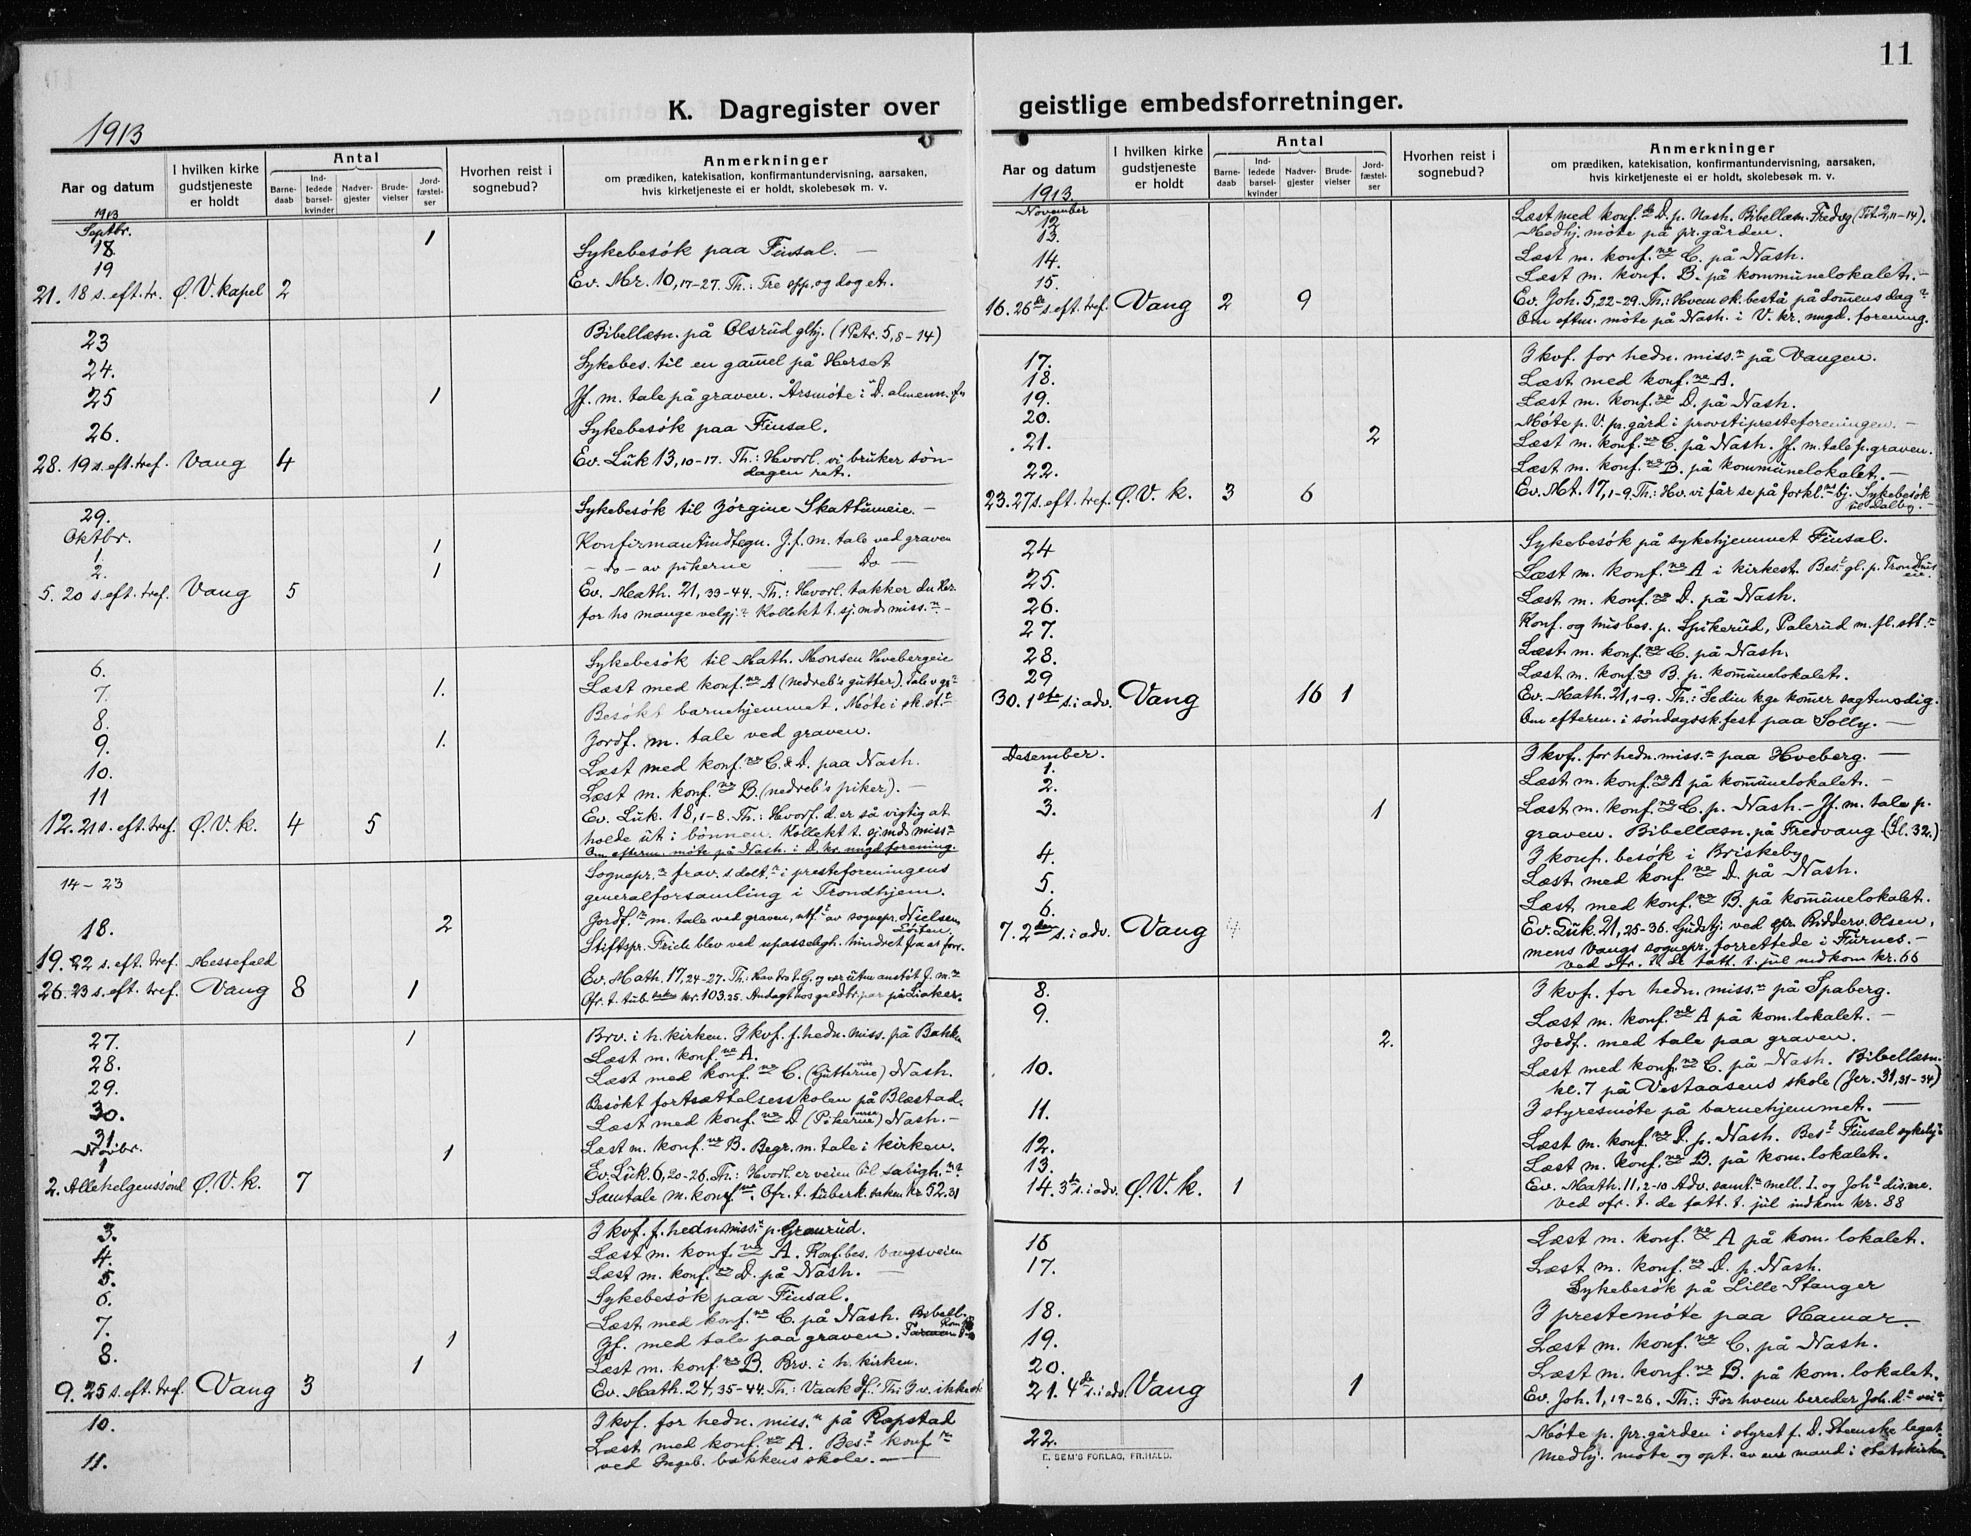 11
K. Dagregister over geistlige embedsforretninger.
1913
Aar og datum
I hvilken kirke gudstjeneste er holdt
Antal
Barne-daab
Ind-ledede barsel-kvinder
Nadver-gjester
Brude-vielser
Jord-fæstel-ser
Hvorhen reist i sognebud?
Anmerkninger
om prædiken, katekisation, konfirmantundervisning, aarsaken,
hvis kirketjeneste ei er holdt, skolebesøk m. v.
1913
Septbr.
18 1
19 Sykebesök paa Finsal. —
21. 18 s. eft. tr. Ø. V. kapel 2 Ev. Mr. 10, 17-27. Th: Tre opp. og dog et.
23 Bibellæsn. på Olsrud glhj. (1 Petr. 5, 8-14)
24. Sykebes. til en gam̄el på Herset
25 1 Jf. m. tale på graven. Årsmöte i D. almenn.
26. Sykebesök paa Finsal.
28. 19 s. eft. tref. Vang 4 Ev. Luk 13, 10-17. Th.: Hvorl. vi bruker søn-
dagen ret.
29. Sykebesök til Jörgine Skattumeie. —
Oktbr.
1. 1 Konfirmantindtegn. J.f. m. tale ved graven
2. 1 — do — av pikerne — Do —
5. 20 s. eft. tref. Vang 5 Ev. Math. 21, 33-44. Th.: Hvorl. takker du Her.
for hs mange velgj.? Kollekt t. sj.mds miss.n —
6. Sykebesök til Math. Monsen Hvebergeie
7. 1. Læst med konf.ne A (nedreb's gutter). Tale v gr
8. Besökt barnehjemmet. Möte i sk. st.
9. 1. Jordf. m. tale ved graven.
10. Læst med konf.ne C. & D. paa Nash.
11 Læst m. konf.ne B. (nedreb's piker). —
12. 21 s. eft. tref. Ø. V. k. 4 5 Ev. Luk. 18, 1-8. Th: Hvorf. d. er så vigtig at
holde ut i bönnen. Kollekt t. sj.mds miss.n
Om efterm. möte på Nash. i D. kr. ungd.forening.
14 - 23 Sognepr.s frav. s delt. i presteforeningens
generalforsamling i Trondhjem.
18. 2 Jordf. m. tale ved graven, utf. av sognepr. Nielsen
Löiten.
Stiftspr. Friele blev ved upasseligh. hindret fra at forr.
19. 22 s. eft. tref. Messefald
26. 23 s. eft. tref. Vang 8 1 Ev. Math. 17, 24-27.
Ofr. t. tub.saken kr. 103.25.
27. 1 Brv. i h. kirken. I kvf. f. hedn. miss. på Bakke
28. Læst m. konf.ne A.
29. Læst med konf.ne C. (Gutterne) Nash.
30. Besökt fortsættelsesskolen på Blæstad.
31. Læst med konf.ne D (Pikerne) Nash. —
Novbr.
1 1 Læst m. konf.ne B. Begr. m. tale i kirken.
2. Allehelgenssönd Ø. V. k. 7 Ev. Luk. 6, 20-26. Th: Hvorl. er veien til saligh.
Samtale m. konf.ne. Ofr. t. tuberk. saken kr 52,31
3. I kvf. f. hedn. miss.n p. Granrud.
4. Læst m. konf.ne A. Konf. bes. Vangsveien
5. Læst m. konf.ne D. på Nash. —
6. Sykebesök paa Finsal.
7. Læst med konf.ne C. på Nash. Bibell.
8. 1 Jf. med tale paa graven.
1 Læst m. konf.ne B. Brv. i h. kirken.
9. 25 s. eft. tref. Vang 3 Ev. Math. 24, 35-44. Th.: Vaak
10. I kvf. for hedn. miss.n på Ropstad
11. Læst med konf.ne A. Bes. konf
ved Ingeb. bakkens skole. —
Aar og datum
I hvilken kirke gudstjeneste er holdt
Antal
Barne-daab
Ind-ledede barsel-kvinder
Nadver-gjester
Brude-vielser
Jord-fæstel-ser
Hvorhen reist i sognebud?
Anmerkninger
om prædiken, katekisation, konfirmantundervisning, aarsaken,
hvis kirketjeneste ei er holdt, skolebesøk m. v.
1913.
November
12 Læst med konf.ne D. p. Nash. Bibellæsn. Fredvg (Tit. 2, 11-14).
13. Medhj. möte på pr.gården.
14. Læst m. konf.ne C. på Nash.
15. Læst m. konf. B. på kommunelokalet. —
16. 26de s. eft. tref. Vang 2 9 Ev. Joh. 5, 22-29. Th.: Hvem sk. bestå på dom̄ens dag?
Om eftm. möte på Nash. i V. kr. ungd. forening.
17. I kvf. for hedn. miss.n på Vangen.
18. Læst med konf.ne A.
19. Læst m. konf.ne D. på Nash.
20. Möte p. V. pr.gård i provstipresteforeningen. —
21. 2 Læst m. konf.ne C. på Nash. Jf. m. tale p. graven.
22. Læst m. konf.ne B. på kommunelokalet. —
23. 27 s. eft. tref. Ø. V. k. 3 6 Ev. Mt. 17, 1-9. Th.: Hv. vi får se på forkl.ns bj. Sykebesök
til Dalby. —
24 Sykebesök på sykehjemmet Finsal.
25. Læst m. konf.ne A i kirkest.
26. Læst m. konf.ne D. på Nash.
27. Konf. og husbes. p. Spikerud, Palerud m. fl. st.
28. Læst m. konf.ne C. på Nash.
29 Læst m. konf.ne B. p. kom̄unelokalet.
30. 1ste s. i adv. Vang 16 1 Ev. Math. 21, 1-9. Th.: Se din kge kom̄er sagtmodig.
Om efterm. i söndagssk.fest paa Solly. —
Desember.
1. I kvf. for hedn. miss.n paa Hveberg. —
2. Læst m. konf.ne A på kom̄unelokalet. —
3. 1 Læst m. konf.ne C. p. Nash. — Jf. m. tale p.
graven. Bibellæsn. på Fredvang (Sl. 32.)
4. I konf. besök i Briskeby
5. Læst med konf.ne D. på Nash.
6. Læst med konf.ne B. på kom̄unelokalet.
7. 2den s. i adv. Vang 4 Ev. Luk. 21, 25-36. Gudstj. ved spr. Ridderv. Olsen,
mens Vangs sognepr. forrettede i Furnes. —
Ved ofr. t. de fatt. t. jul indkom kr. 66
8. I kvf. for hedn. miss.n på Spaberg.
9. Læst m. konf.ne A på kom. lokalet. —
2. Jordf. med tale paa graven.
10. Læst med konf.ne C. på Nash. Bibellæsn.
kl. 7 på Vestaasens skole (Jer. 31, 31-34)
11. I styresmöte på barnehjemmet. —
12. Læst m. konf.ne D. p. Nash. Bes. Finsal sykehj.
13. Læst m. konf.ne B. på kom. lokalet.
14. 3de s. i adv. Ø. V. k. 1 Ev. Math. 11, 2-10 Adv. samt. mell. J. og Joh. disne.
Ved ofr. t. de fatt. t. jul indkom kr. 88
16 Læst m. konf.ne A på kom. lokalet.
17. Læst m. konf.ne D. p. Nash.
Sykebesök på Lille Stanger
18. I prestemöte paa Hamar. —
19. Læst m. konf.ne C. på Nash.
20. Læst m. konf.ne B. på kom. lokalet.
21. 4de s. i adv Vang 1 Ev. Joh. 1, 19-26. Th.: For hvem bereder Joh. d.
22. Möte p. pr.gården i styret f. D. Steenske legat
Medhj. möte og opt. av en mand i statskirken
E. SEM'S FORLAG, FR.HALD.